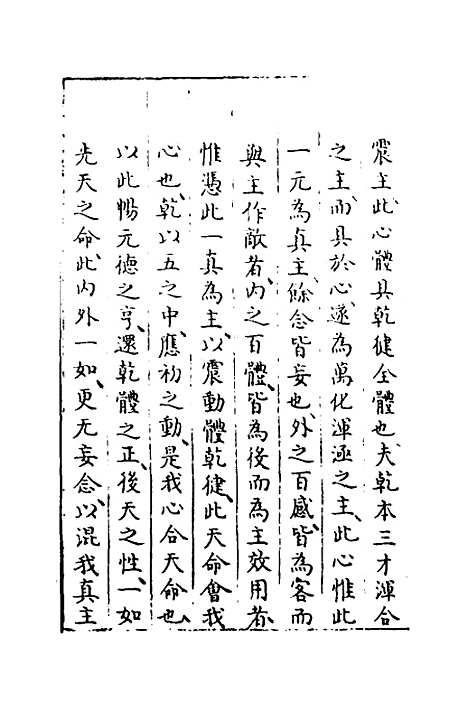 震主此、心體具乾健全體也、夫乾本三才渾合
之主、而具於心、遂為萬化渾涵之主、此心惟此
一元為真主、餘念皆妄也、外之百感、皆為客而
與主作敵者、內之百體、皆為後而為主效用者、
惟憑此一真為主、以震動體乾健、此天命會我
心也、乾以五之中、應初之動、是我心合天命也、
以此暢元德之亨、還乾體之正、後天之性、一如
先天之命、此內外一如、更无妄念、以混我真主